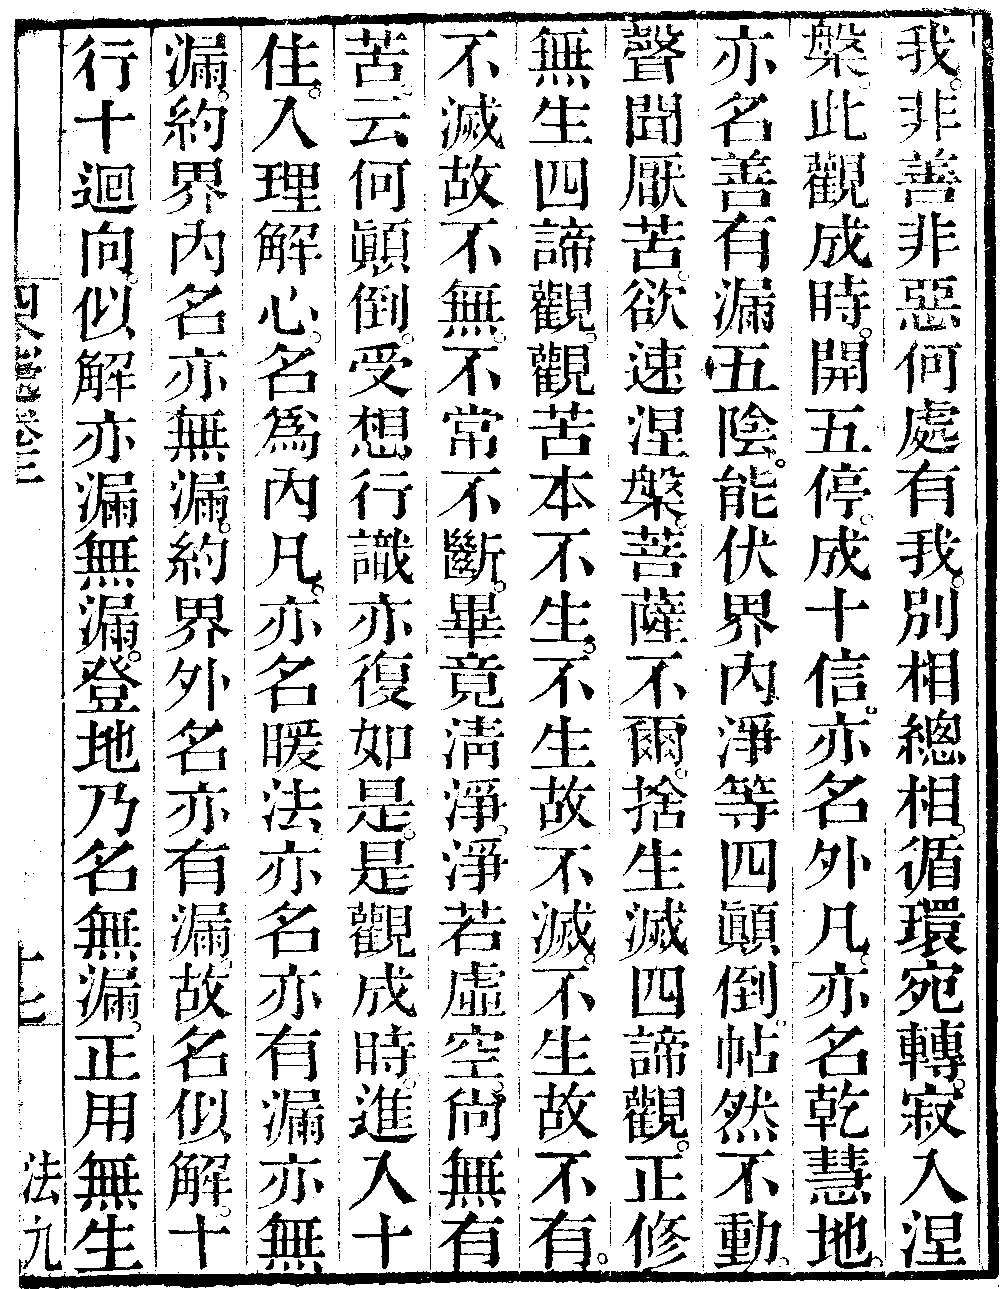 我。非善非惡何處有我。別相總相。循環宛轉。寂入涅
槃。此觀成時。開五停。成十信。亦名外凡。亦名乾慧地。
亦名善有漏五陰。能伏界內淨等四顚倒。帖然不動。
聲聞厭苦。欲速涅槃。菩薩不爾。捨生滅四諦觀。正修
無生四諦觀。觀苦本不生。不生故不滅。不生故不有。
不滅故不無。不常不斷。畢竟淸淨。淨若虛空。尙無有
苦。云何顚倒。受想行識亦復如是。是觀成時。進入十
住。入理解心。名爲內凡。亦名暖法亦名亦有漏亦無
漏。約界內名亦無漏。約界外名亦有漏。故名似解。十
行十迴向。似解亦漏無漏。登地乃名無漏。正用無生
卷三
十七
法九